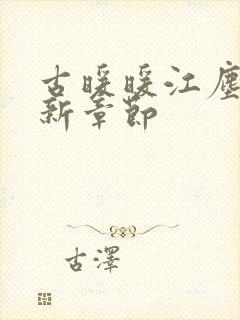 古暖暖江塵
新章節
古澤